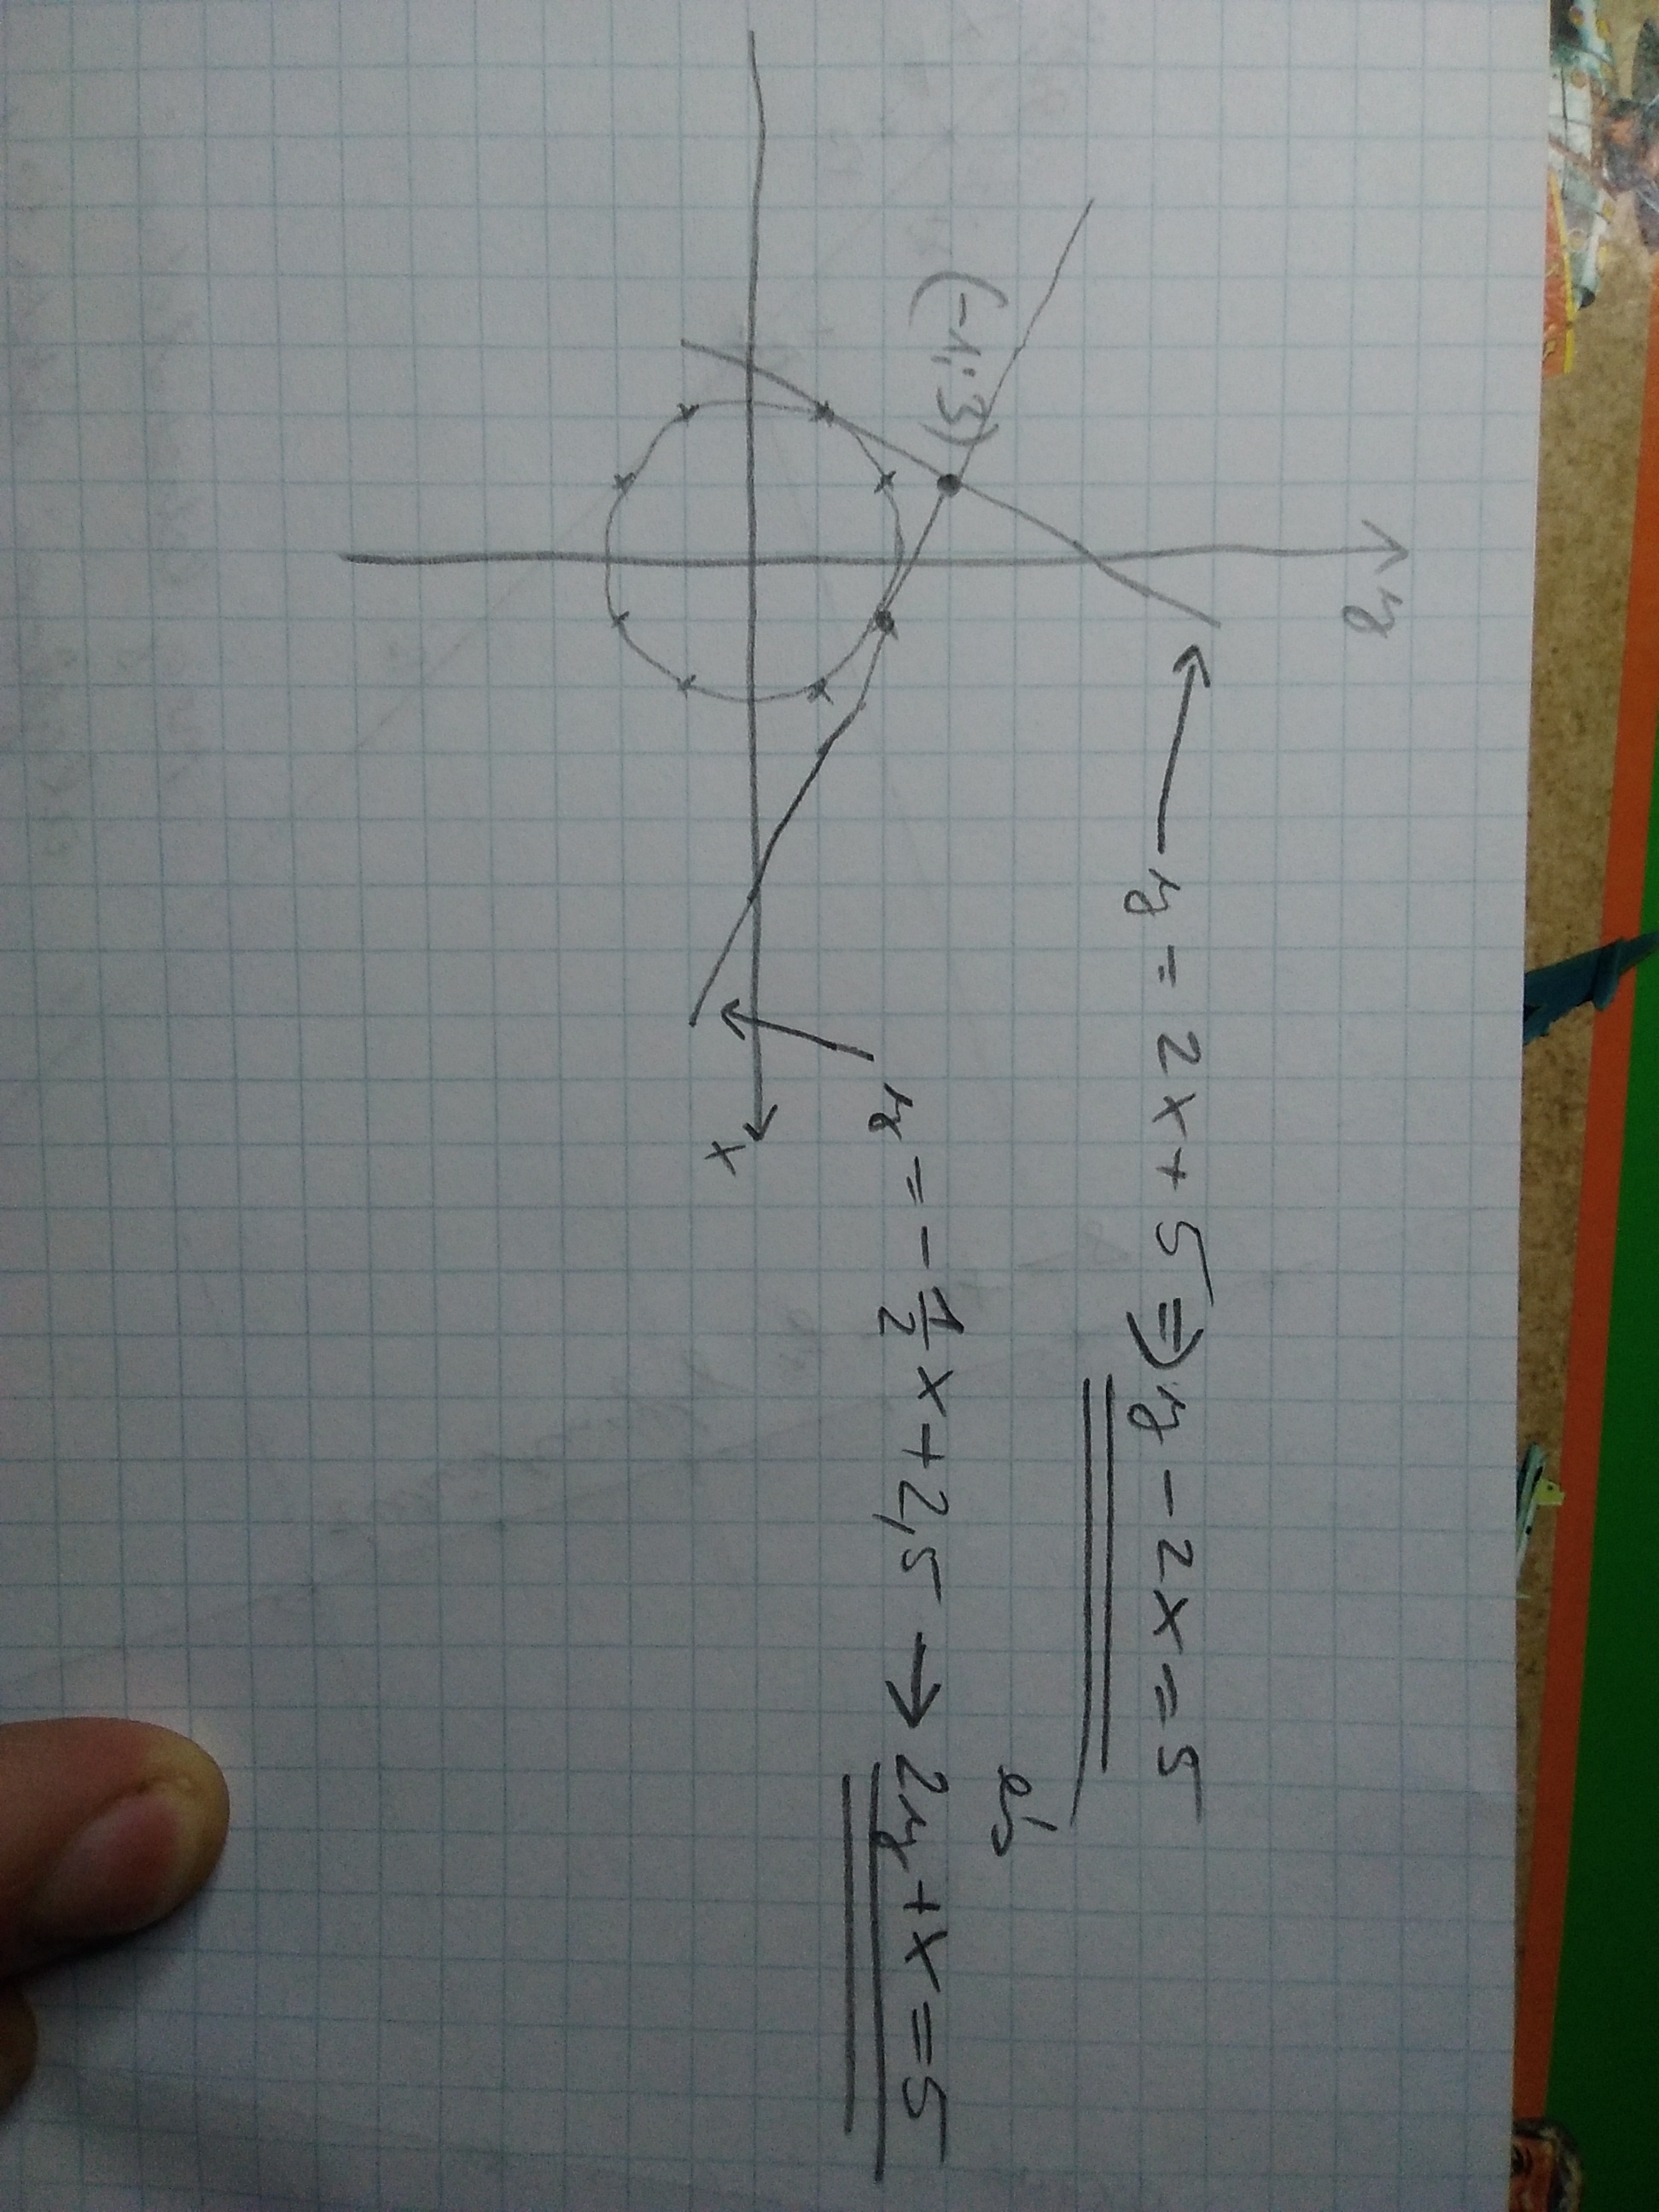 y
(-1; 3)
y = 2x + 5 ⇒ y - 2x = 5
és
y = -1/2 x + 2,5 → 2y + x = 5
x